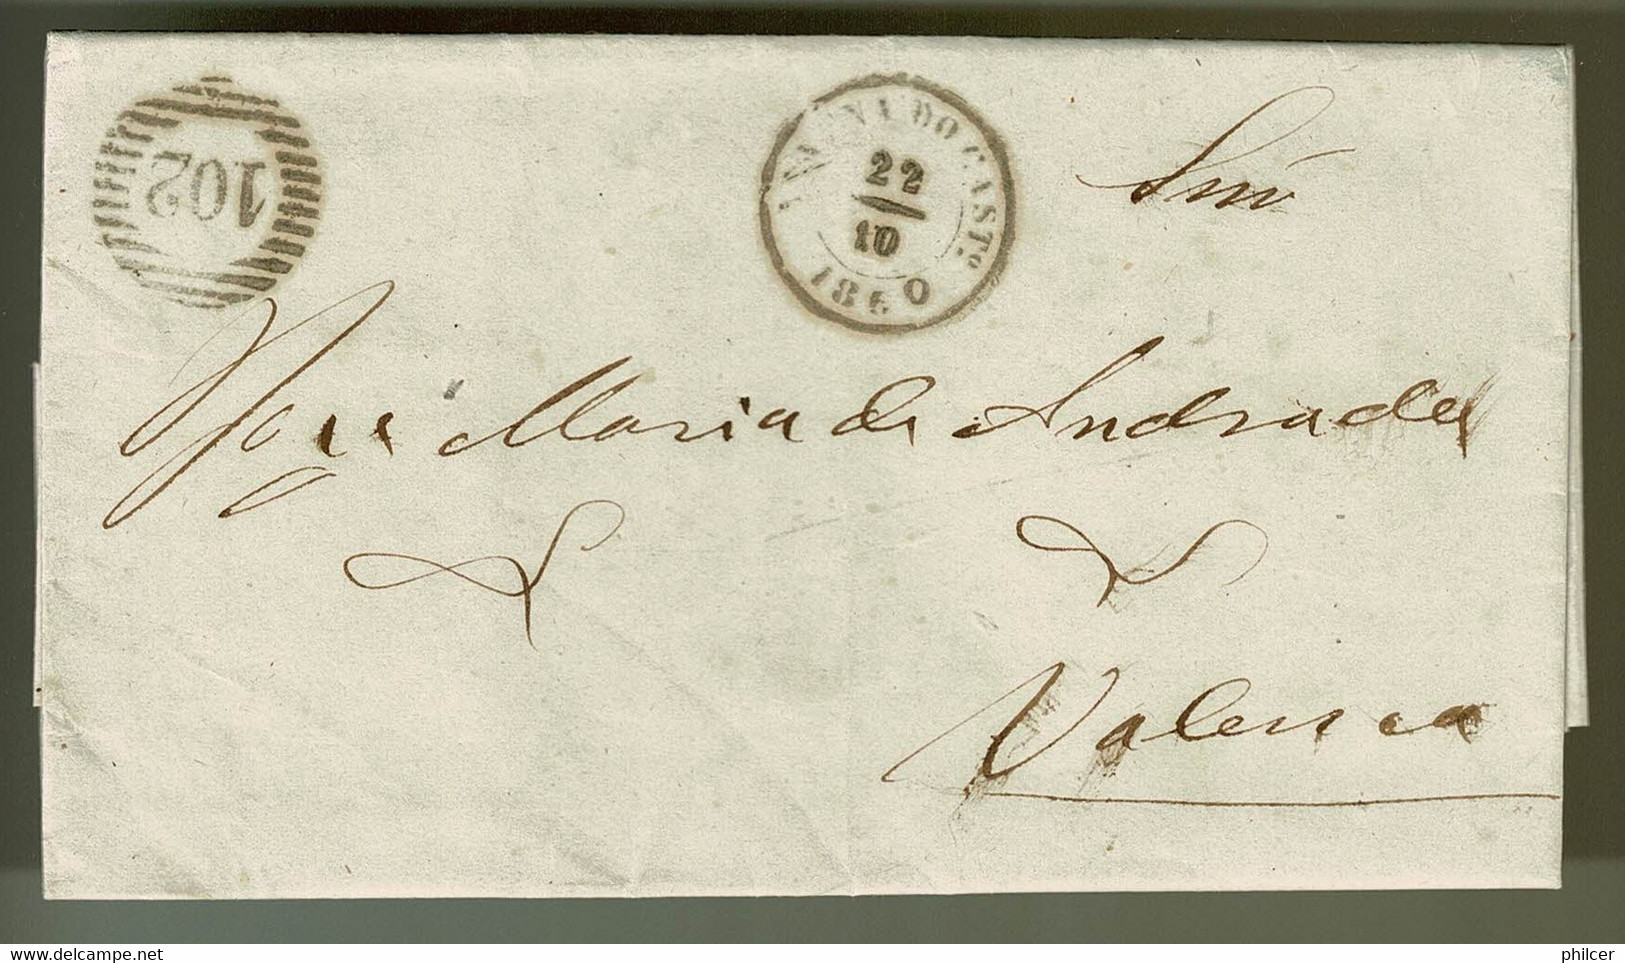 102
VIANNA DO CAST.º
22
10
1860
José Maria de Andrade
Valença
www.delcampe.net
philcer